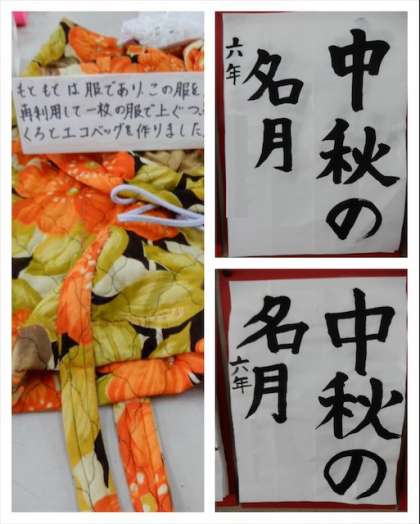 もともとは服であり、この服を
再利用して一枚の服で上ぐつぶ
くろとエコバッグを作りました
中秋の
名月
六年
中秋の
名月
六年